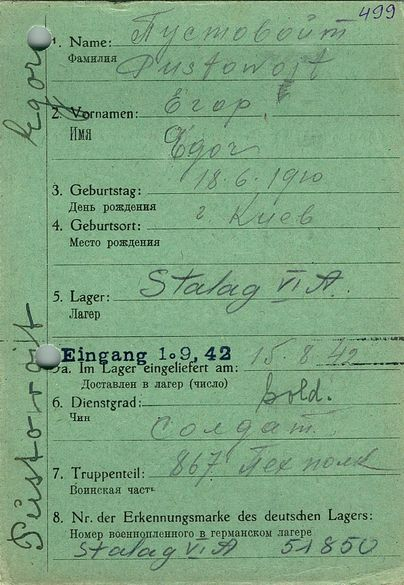 499
1. Name: Пустовойт
Фамилия Pustowojt
2. Vornamen: Егор
Имя Egor
18.6.1910
3. Geburtstag:
День рождения
г. Киев
4. Geburtsort:
Место рождения
Stalag VI A.
5. Lager:
Лагерь
Eingang 1.9.42 15.8.42
5a. Im Lager eingeliefert am:
Доставлен в лагерь (число)
6. Dienstgrad: Sold.
Чин
Солдат
7. Truppenteil: 867 Пех полк
Воинская часть
8. Nr. der Erkennungsmarke des deutschen Lagers:
Номер военнопленного в германском лагере
Stalag VI A 51850
Pustowoit Egor